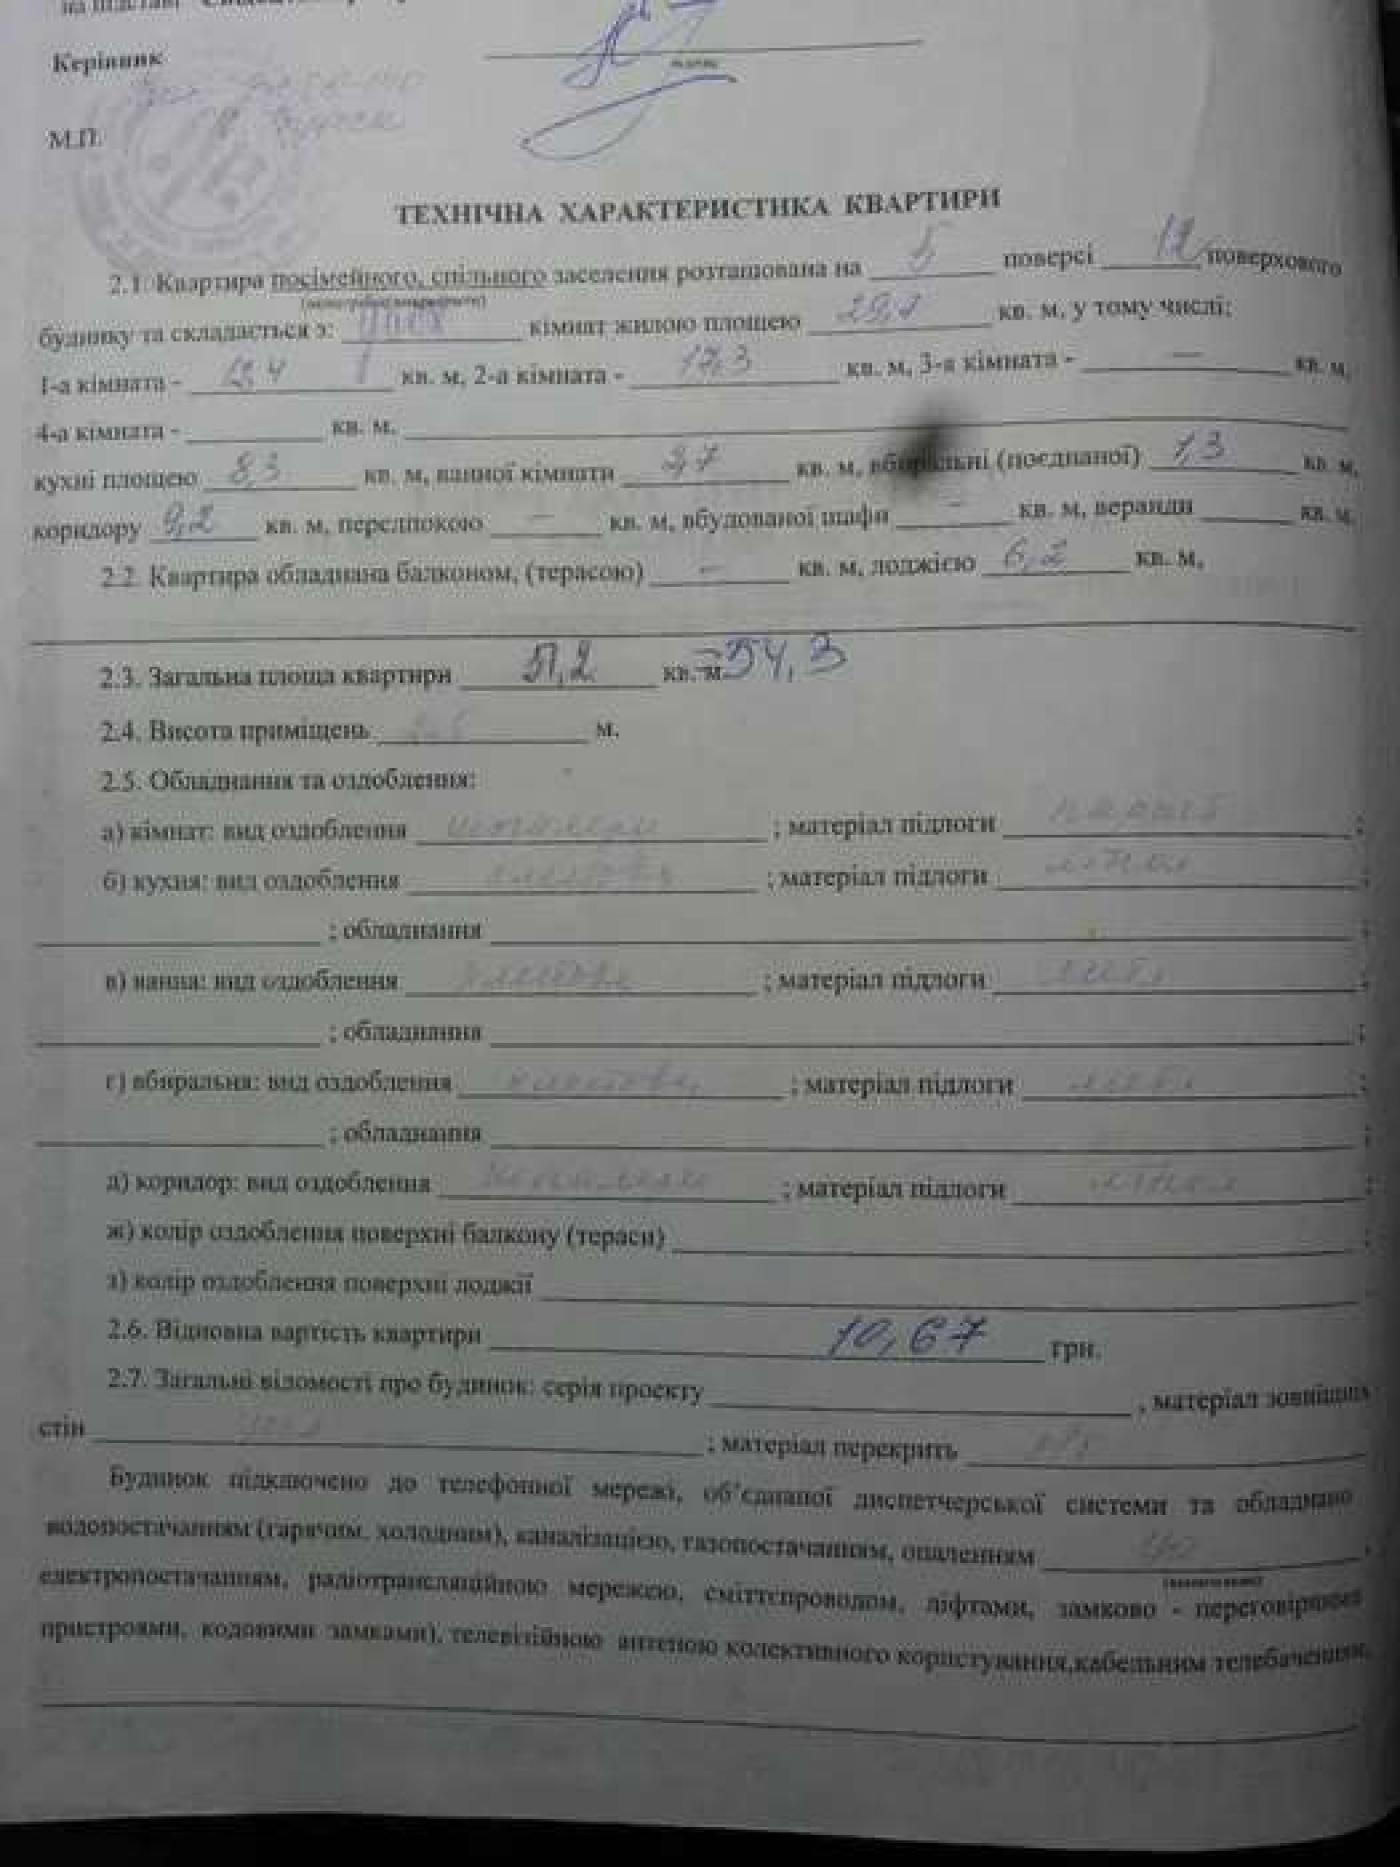 на підставі
Керівник
М.П.
підпис
ТЕХНІЧНА ХАРАКТЕРИСТИКА КВАРТИРИ
2.1. Квартира посімейного, спільного заселення розташована на 5 поверсі 12 поверхового
будинку та складається з: кімнат жилою площею 29,7 кв. м, у тому числі:
1-а кімната - 12,4 кв. м, 2-а кімната - 17,3 кв. м, 3-а кімната - — кв. м,
4-а кімната - кв. м.
кухні площею 8,3 кв. м, ванної кімнати 2,7 кв. м, вбиральні (поєднаної) 1,3 кв. м,
коридору 9,2 кв. м, передпокою — кв. м, вбудованої шафи - кв. м, веранди кв. м,
2.2. Квартира обладнана балконом, (терасою) - кв. м, лоджією 6,2 кв. м,
2.3. Загальна площа квартири 51,2 кв. м 54,3
2.4. Висота приміщень м.
2.5. Обладнання та оздоблення:
а) кімнат: вид оздоблення шпалери ; матеріал підлоги паркет ;
б) кухня: вид оздоблення ; матеріал підлоги ;
; обладнання ;
в) ванна: вид оздоблення ; матеріал підлоги ;
; обладнання ;
г) вбиральня: вид оздоблення ; матеріал підлоги ;
; обладнання ;
д) коридор: вид оздоблення шпалери ; матеріал підлоги ;
ж) колір оздоблення поверхні балкону (тераси) ;
з) колір оздоблення поверхні лоджії
2.6. Відновна вартість квартири 10,67 грн.
2.7. Загальні відомості про будинок: серія проекту , матеріал зовнішніх
стін ; матеріал перекрить
Будинок підключено до телефонної мережі, об'єднаної диспетчерської системи та обладнано
водопостачанням (гарячим, холодним), каналізацією, газопостачанням, опаленням ,
електропостачанням, радіотрансляційною мережею, сміттєпроводом, ліфтами, замково - переговірними
пристроями, кодовими замками), телевізійною антеною колективного користування,кабельним телебаченням.